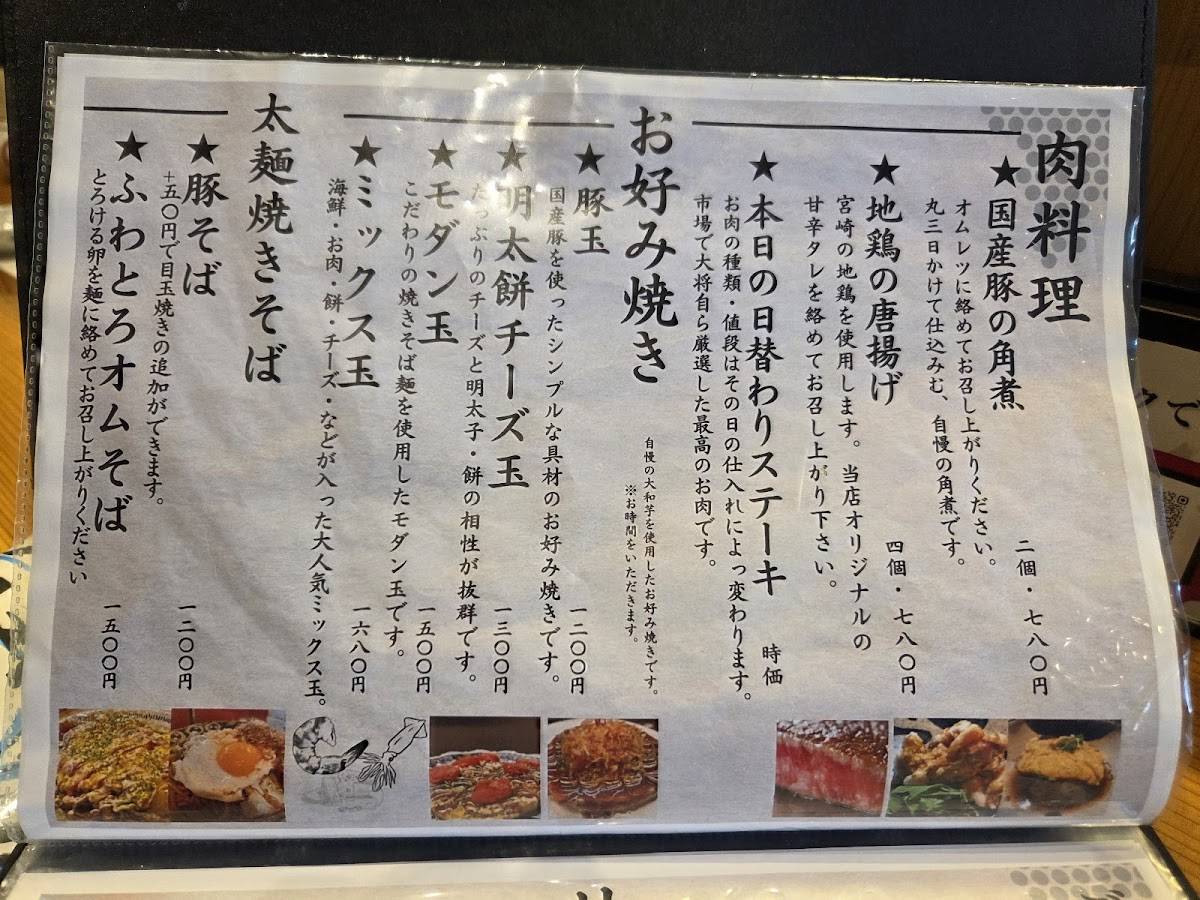 肉料理
★国産豚の角煮
オムレツに絡めてお召し上がりください。
丸三日かけて仕込みむ、自慢の角煮です。
二個・七八〇円
★地鶏の唐揚げ
宮崎の地鶏を使用します。当店オリジナルの
甘辛タレを絡めてお召し上がり下さい。
四個・七八〇円
★本日の日替わりステーキ
お肉の種類・値段はその日の仕入れによっ変わります。
市場で大将自ら厳選した最高のお肉です。
時価
お好み焼き
自慢の大和芋を使用したお好み焼きです。
※お時間をいただきます。
★豚玉
国産豚を使ったシンプルな具材のお好み焼きです。
一二〇〇円
★明太餅チーズ玉
たっぷりのチーズと明太子・餅の相性が抜群です。
一三〇〇円
★モダン玉
こだわりの焼きそば麺を使用したモダン玉です。
一五〇〇円
★ミックス玉
海鮮・お肉・餅・チーズ・などが入った大人気ミックス玉。
一六八〇円
太麺焼きそば
★豚そば
+五〇円で目玉焼きの追加ができます。
一二〇〇円
★ふわとろオムそば
とろける卵を麺に絡めてお召し上がりください
一五〇〇円